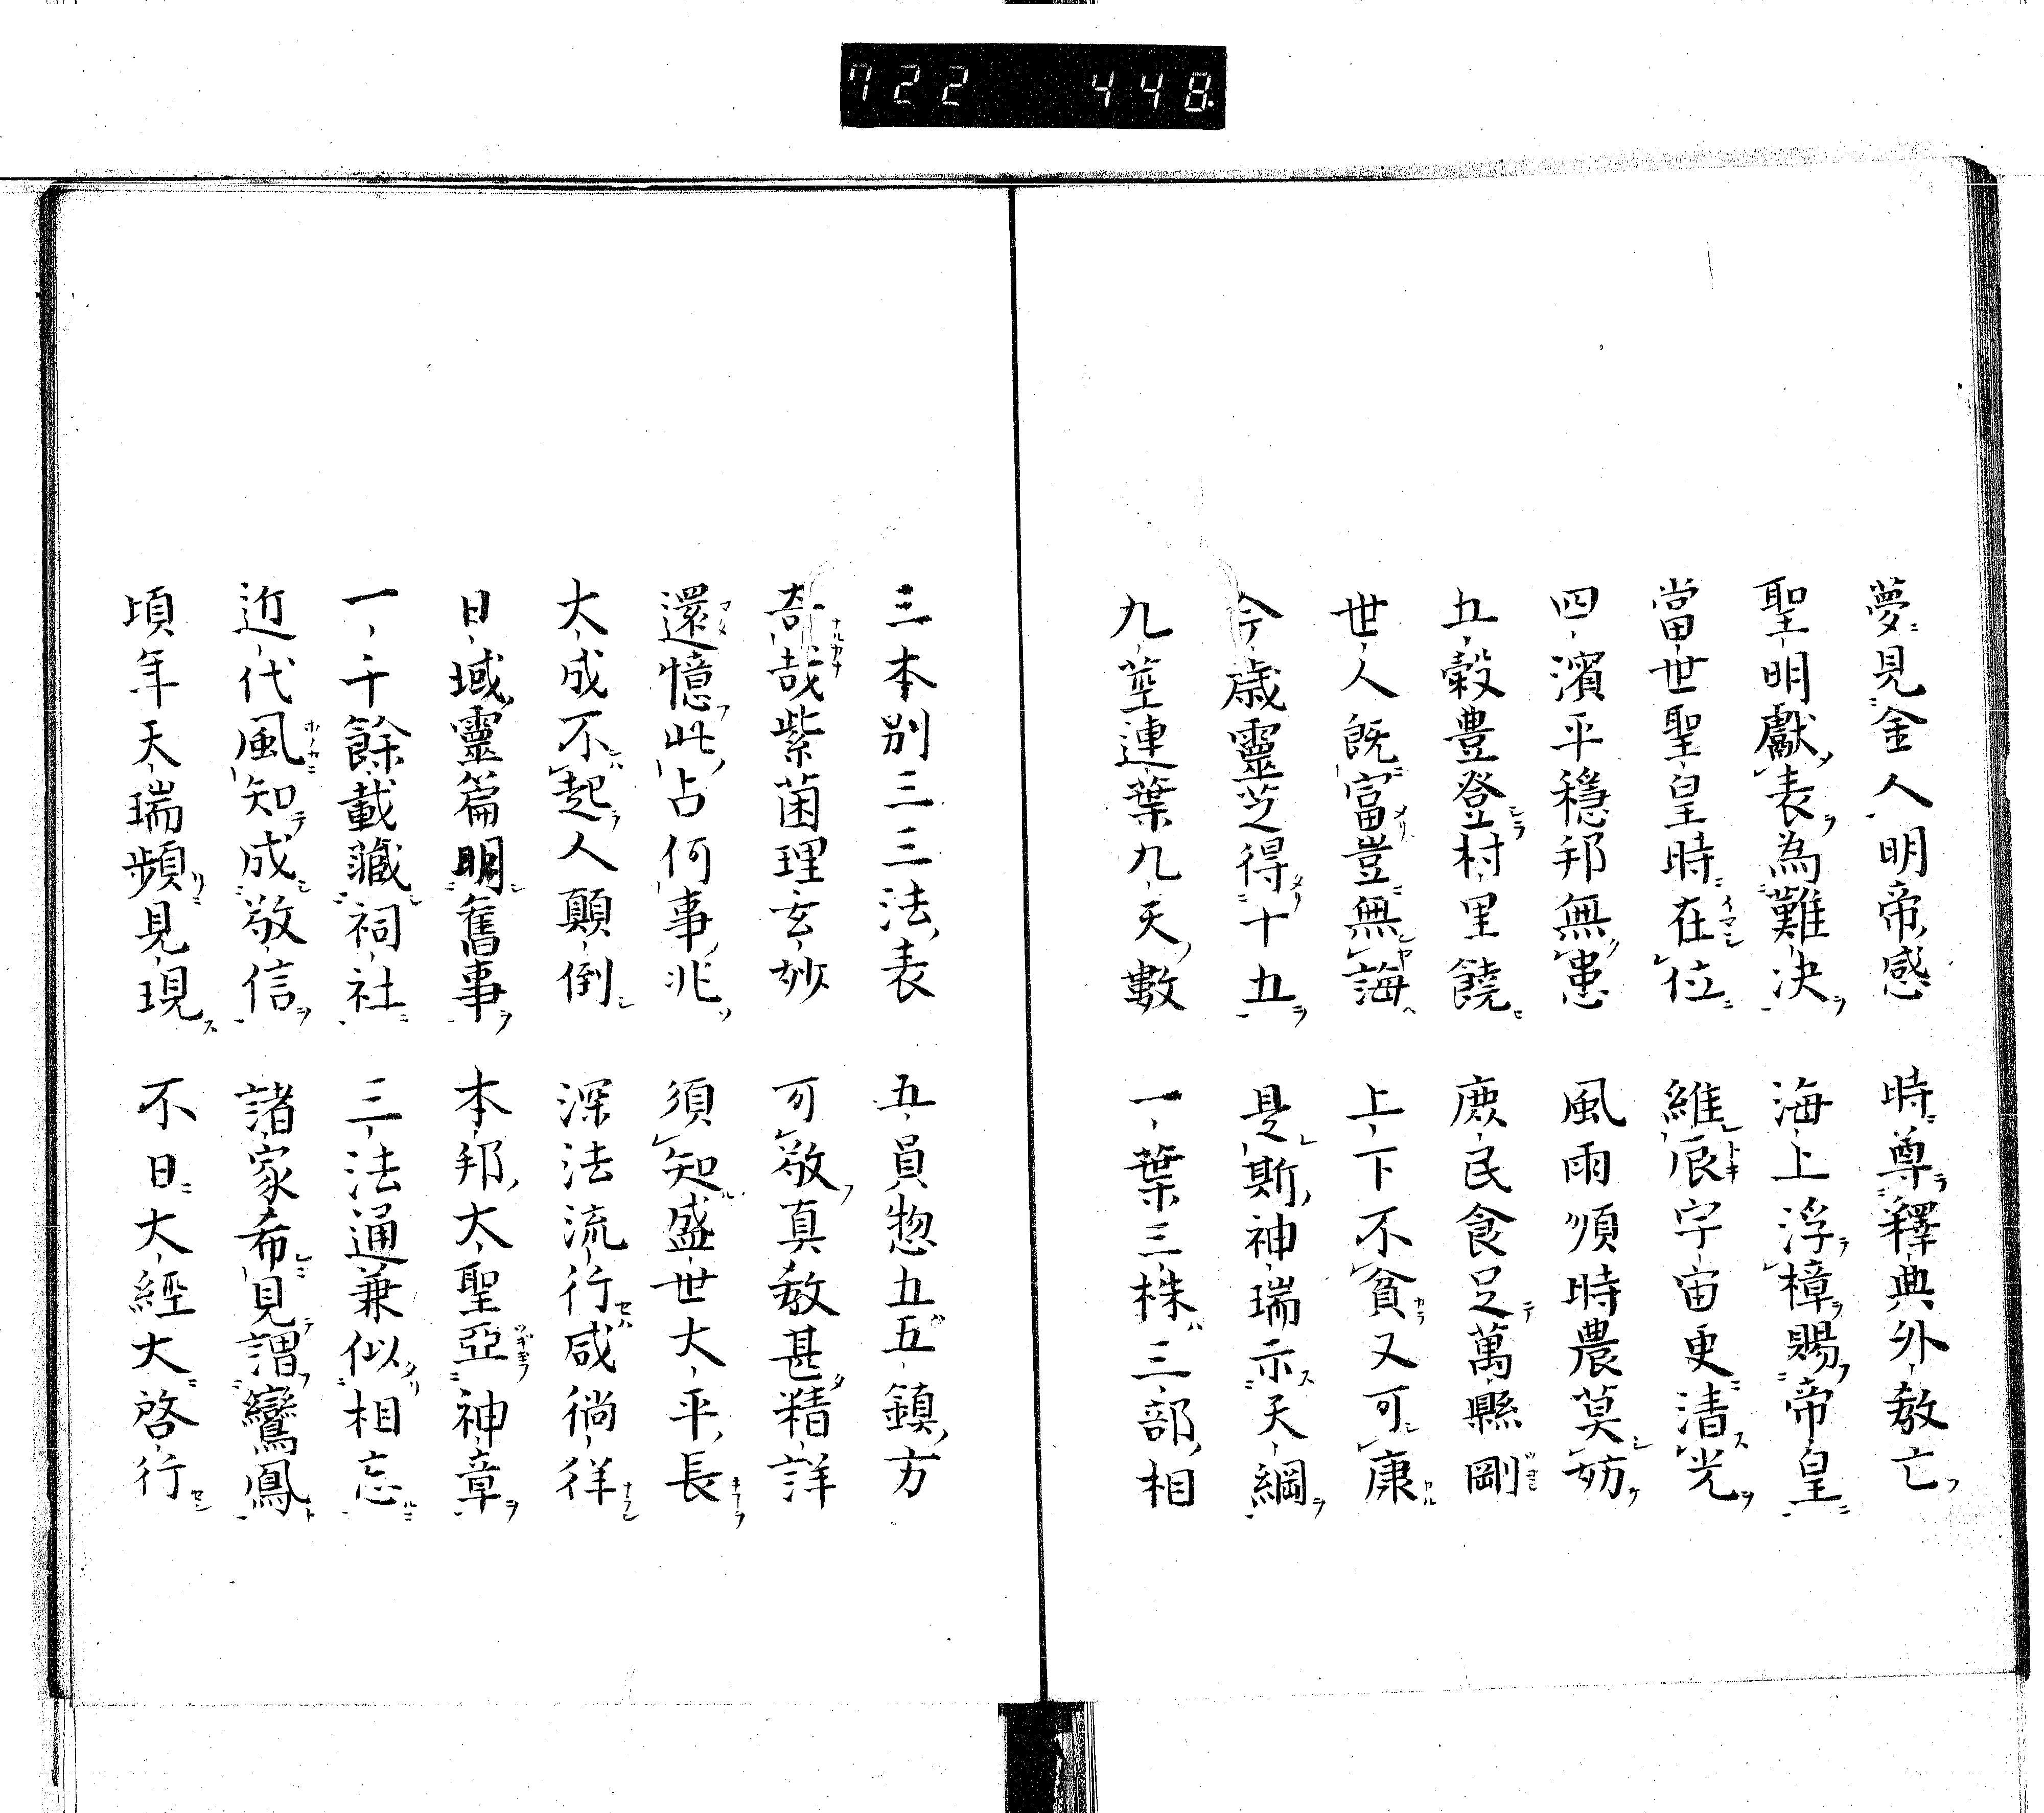 722 448
夢見金人明帝感 時尊釋典外教亡
聖明獻表為難決 海上浮樟賜帝皇
當世聖皇時在位 維辰宇宙更清光
四濱平穏邦無患 風雨順時農莫妨
五穀豊登村里饒 庶民食足萬縣剛
世人既富豈無誨 上下不貧又可康
今歳靈芝得十五 是斯神瑞示天綱
九莖連葉九天數 一葉三株三部相
三本別三三法表 五員惣五五鎮方
奇哉紫菌理玄妙 可敬真教甚精詳
還憶此占何事兆 須知盛世大平長
大成不起人顛倒 深法流行咸徜徉
日域靈篇明舊事 本邦大聖亞神章
一千餘載藏祠社 三法通兼似相忘
近代風知成敬信 諸家希見謂鸞鳳
頃年天瑞頻見現 不日大經大啓行